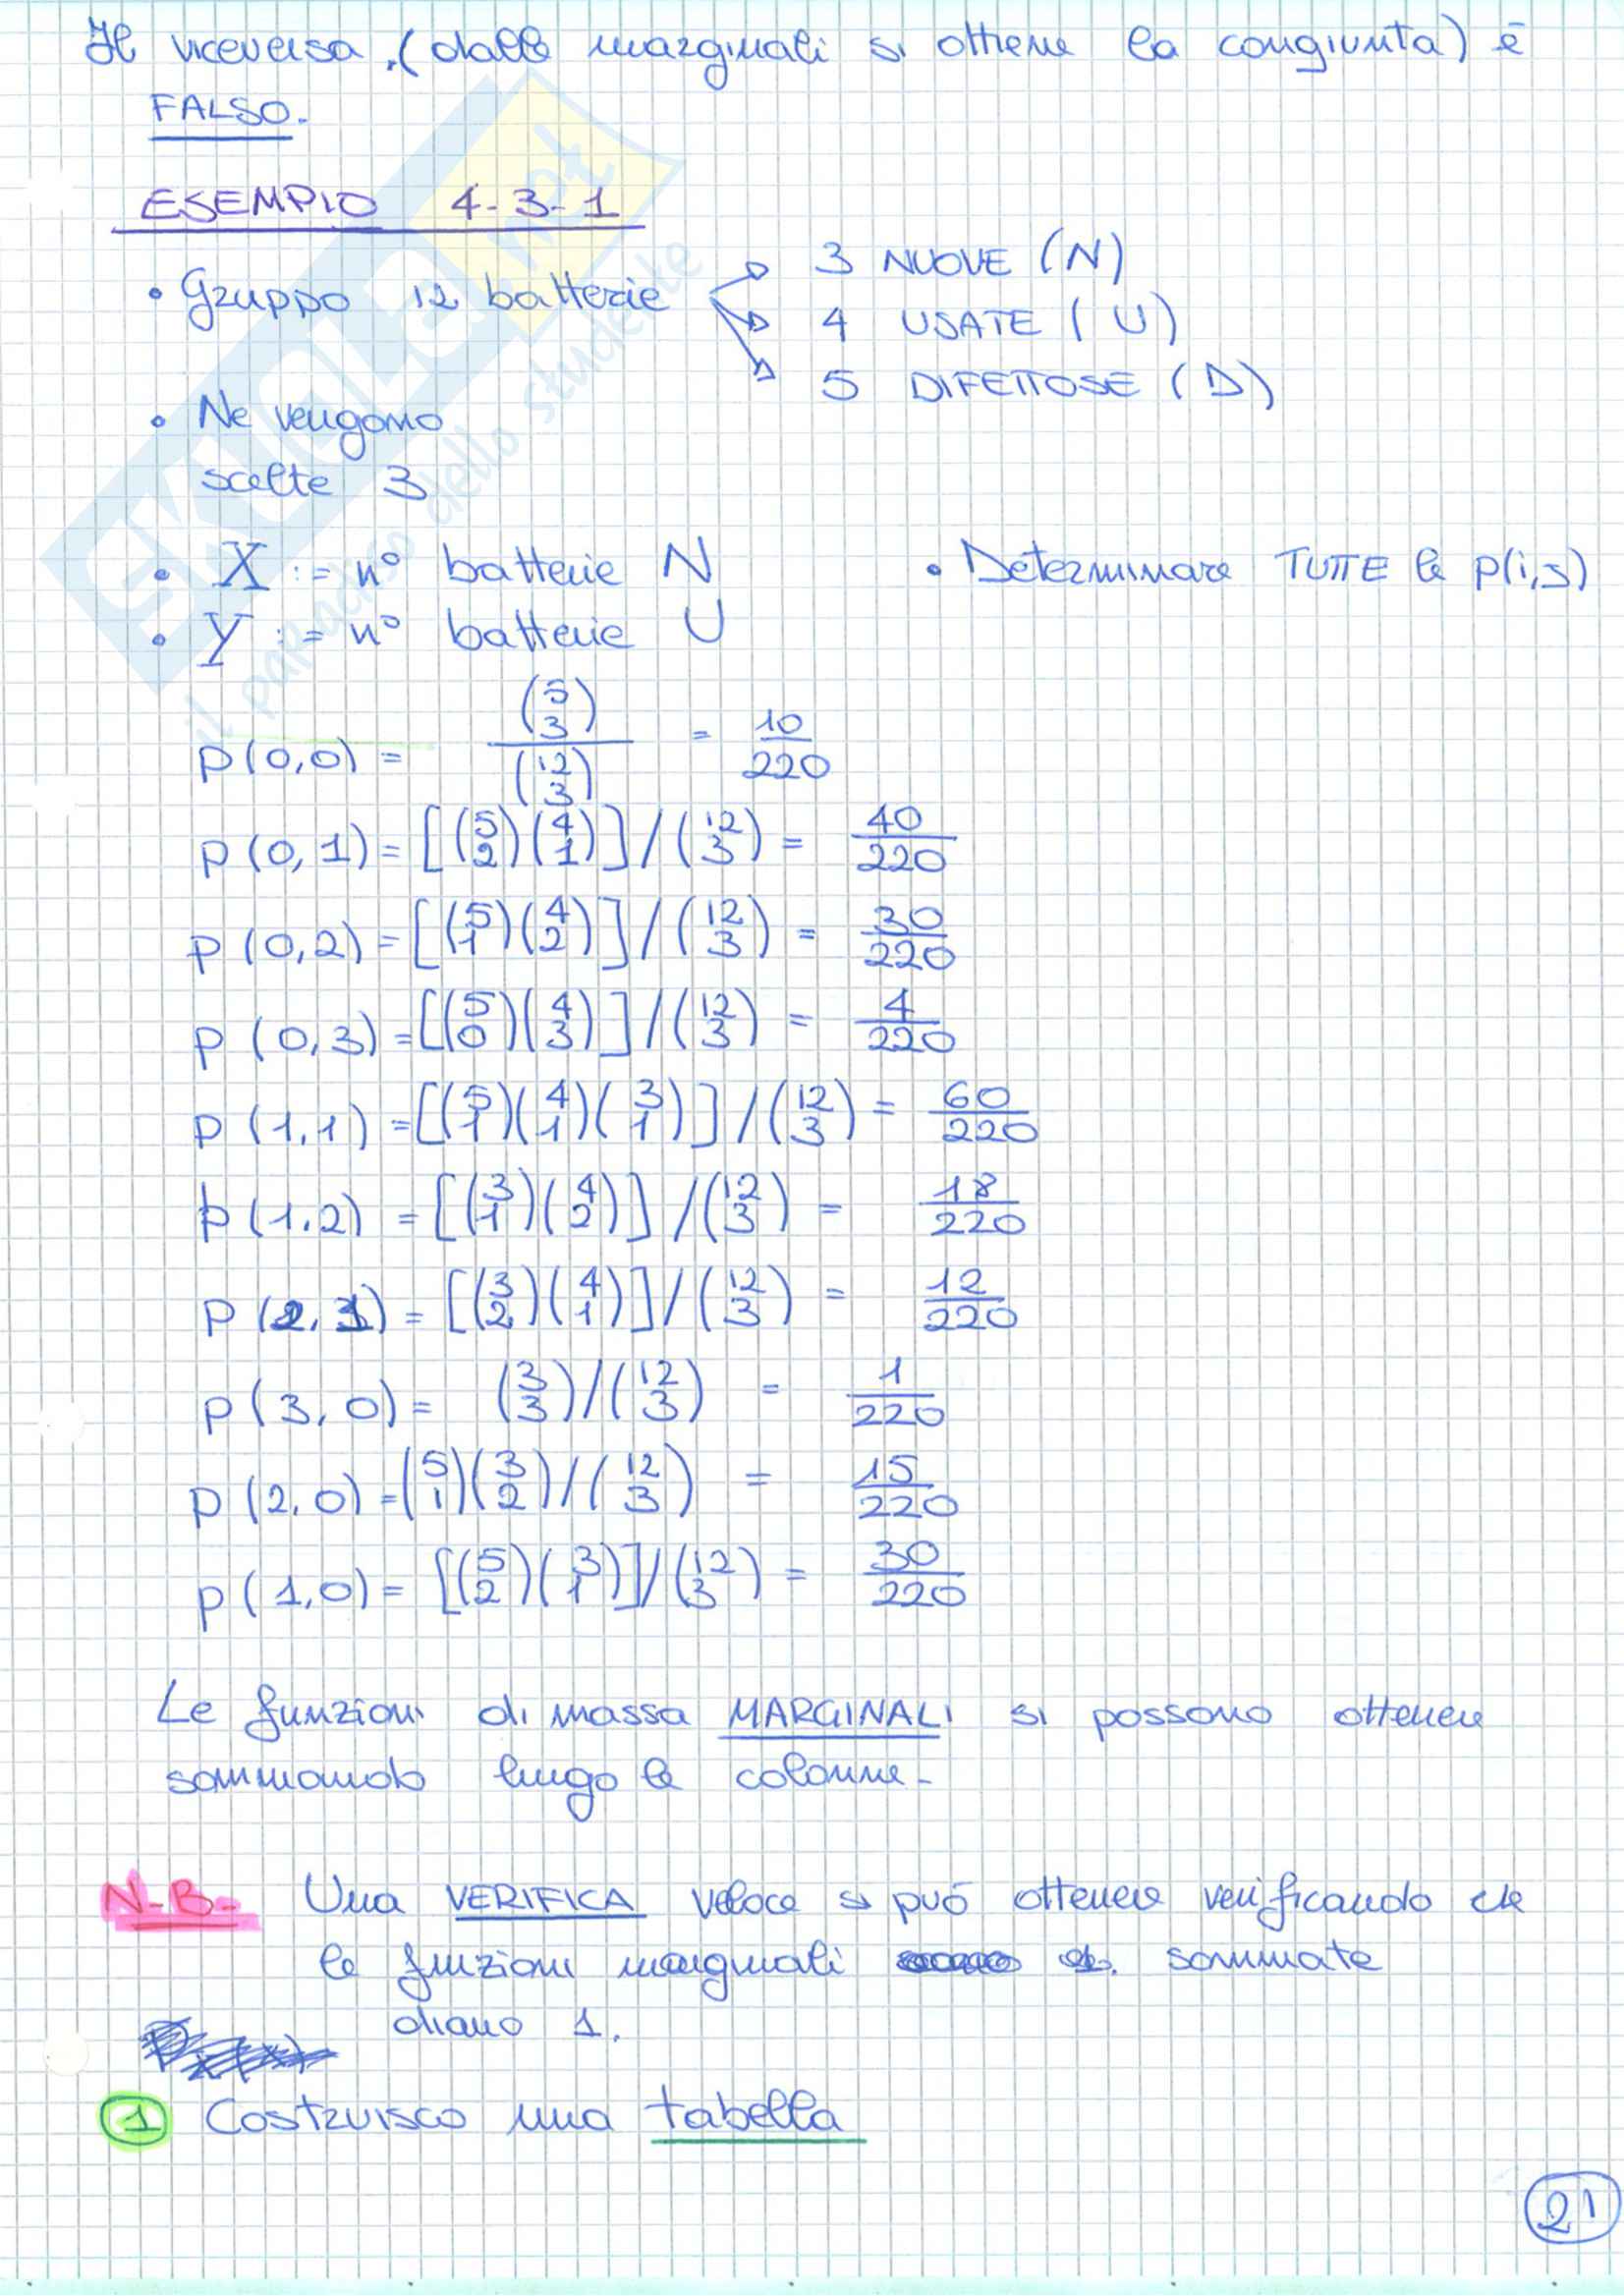 Il viceversa, (dalle marginali si ottiene la congiunta) è
FALSO.
ESEMPIO 4.3.1
• Gruppo 12 batterie
3 NUOVE (N)
4 USATE (U)
5 DIFETTOSE (D)
• Ne vengono
scelte 3
• X := n° batterie N
• Determinare TUTTE le p(i,j)
• Y := n° batterie U
p(0,0) = (5 3) / (12 3) = 10/220
p(0,1) = [(5 2)(4 1)]/(12 3) = 40/220
p(0,2) = [(5 1)(4 2)]/(12 3) = 30/220
p(0,3) = [(5 0)(4 3)]/(12 3) = 4/220
p(1,1) = [(5 1)(4 1)(3 1)]/(12 3) = 60/220
p(1,2) = [(3 1)(4 2)]/(12 3) = 18/220
p(2,1) = [(3 2)(4 1)]/(12 3) = 12/220
p(3,0) = (3 3)/(12 3) = 1/220
p(2,0) = (5 1)(3 2)/(12 3) = 15/220
p(1,0) = [(5 2)(3 1)]/(12 3) = 30/220
Le funzioni di massa MARGINALI si possono ottenere
sommando lungo le colonne.
N.B. Una VERIFICA veloce si può ottenere verificando che
le funzioni marginali sommate
diano 1.
1 Costruisco una tabella
21
SKUOLA.net
il paradiso dello studente